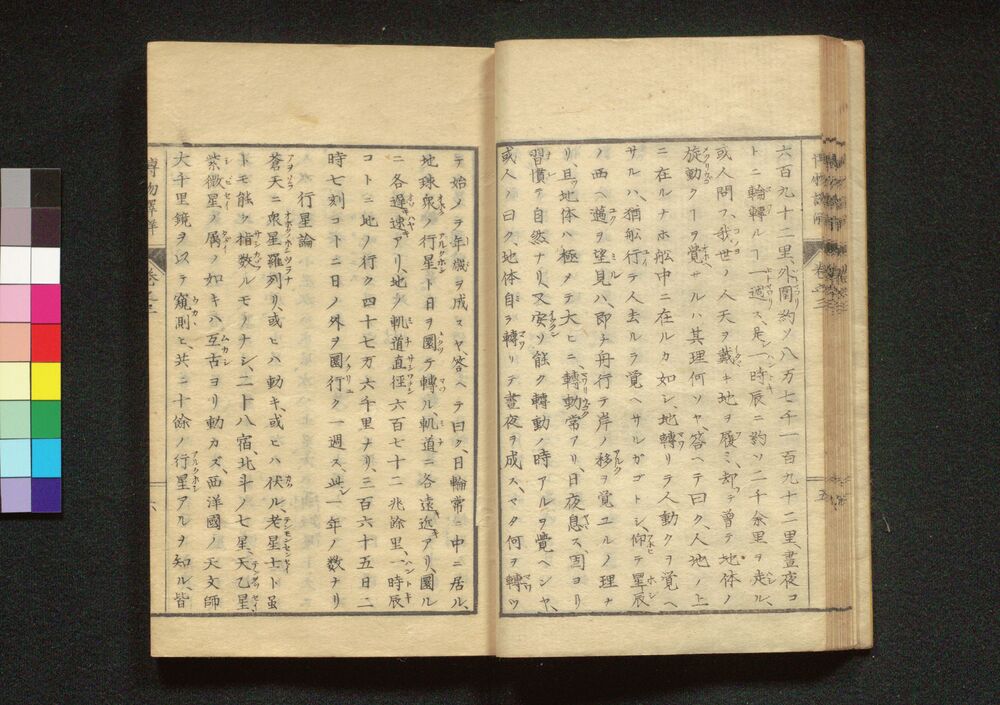 六百九十二里、外圍約ソ八万七千一百九十二里、晝夜コ
トニ輪轉ルヿ一週ス、是レ一時辰ニ約ソ二千余里ヲ走ル、
或人問フ、我世ノ人天ヲ戴キ地ヲ履ミ、却テ曾テ地体ノ
旋動クヿヲ覚サルハ其理何ソヤ、答ヘテ曰ク、人地ノ上
ニ在ルナホ舩中ニ在ルカ如シ、地轉リテ人動クヲ覚ヘ
サルハ、猶舩行テ人去ルヲ覚ヘサルガゴトシ、仰テ星辰
ノ西ヘ邁ヲ望見ハ、即チ舟行テ岸ノ移ヲ覚ユルノ理ナ
リ、且地体ハ極メテ大ヒニ、轉動常アリ、日夜息ス、固ヨリ
習慣テ自然ナリ、又安ソ能ク轉動ノ時アルヲ覺ヘンヤ、
或人ノ曰ク、地体自ラ轉リテ晝夜ヲ成ス、マタ何ヲ轉ツ
五
テ始メテ年歳ヲ成スヤ、答ヘテ曰ク、日輪常ニ中ニ居ル、
地球衆ノ行星ト日ヲ圜テ轉ル、軌道ニ各遠近アリ、圜ル
ニ各遲速アリ、地ノ軌道直徑六百七十二兆餘里、一時辰
コトニ地ノ行ク四十七万六千里ナリ、三百六十五日二
時七刻コトニ日ノ外ヲ圜行ク一週ス、此レ一年ノ数ナリ
行星論
蒼天ニ衆星羅列リ、或ヒハ動キ、或ヒハ伏ル、老星士ト虽
トモ能ク指数ルモノナシ、二十八宿、北斗ノ七星、天乙星、
紫微星ノ属ノ如キハ亙古ヨリ動カズ、西洋國ノ天文師
大千里鏡ヲ以テ窺測ヒ、共ニ十餘ノ行星アルヲ知ル、皆
博物譯解
六